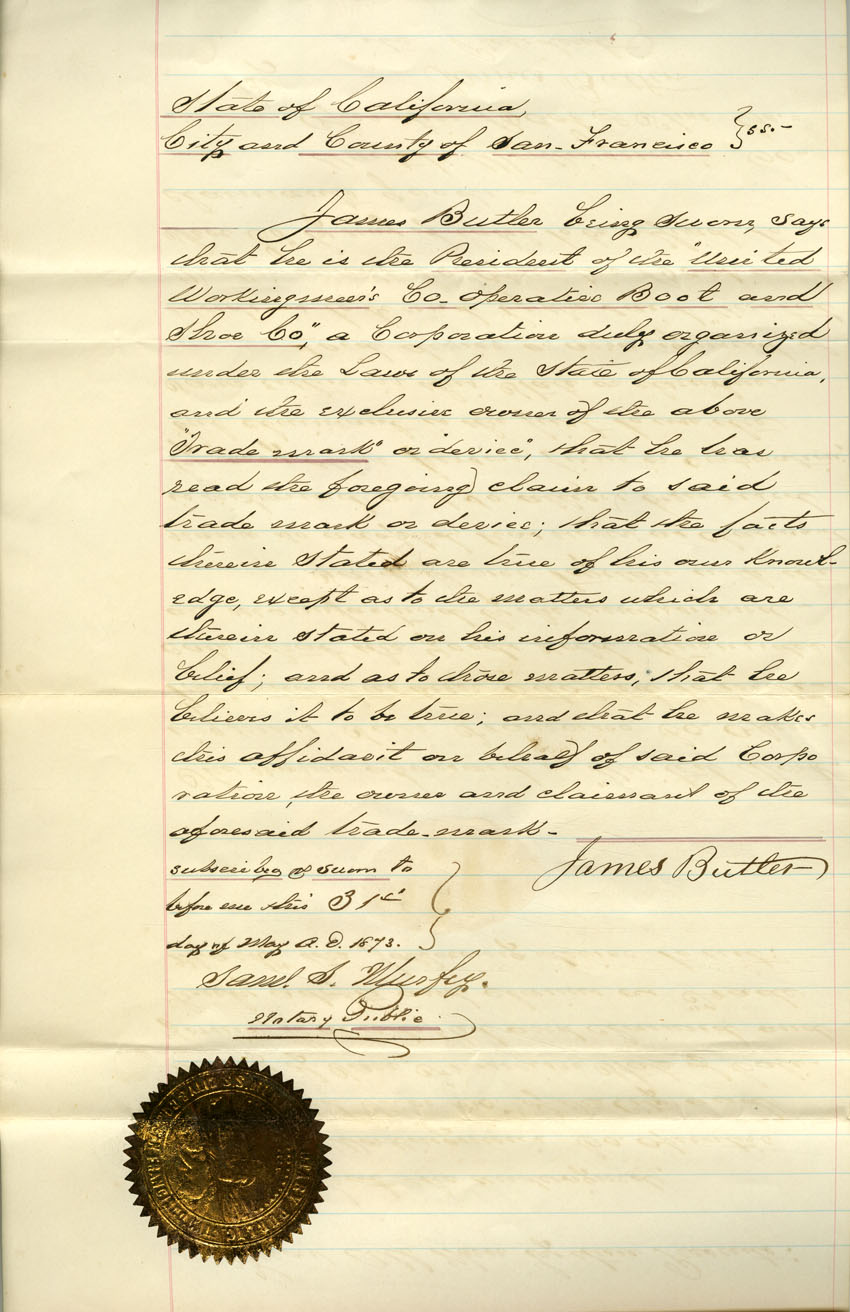 State of California,
City and County of San-Francisco } ss.-
James Butler being sworn, says
that he is the President of the "United
Workingmen's Co-operative Boot and
Shoe Co", a Corporation duly organized
under the Laws of the State of California,
and the exclusive owner of the above
"Trade mark" or "device", that he has
read the foregoing claim to said
trade mark or device; that the facts
therein stated are true of his own Knowl-
edge, except as to the matters which are
therein stated on his information or
belief; and as to those matters, that he
believes it to be true; and that he makes
this affidavit on behalf of said Corpo
ration, the owner and claimant of the
aforesaid trade-mark-
James Butler
subscribed & sworn to
before me this 31st
day of May A.D. 1873.
Saml. S. Murfey.
Notary Public.
NOTARY PUBLIC